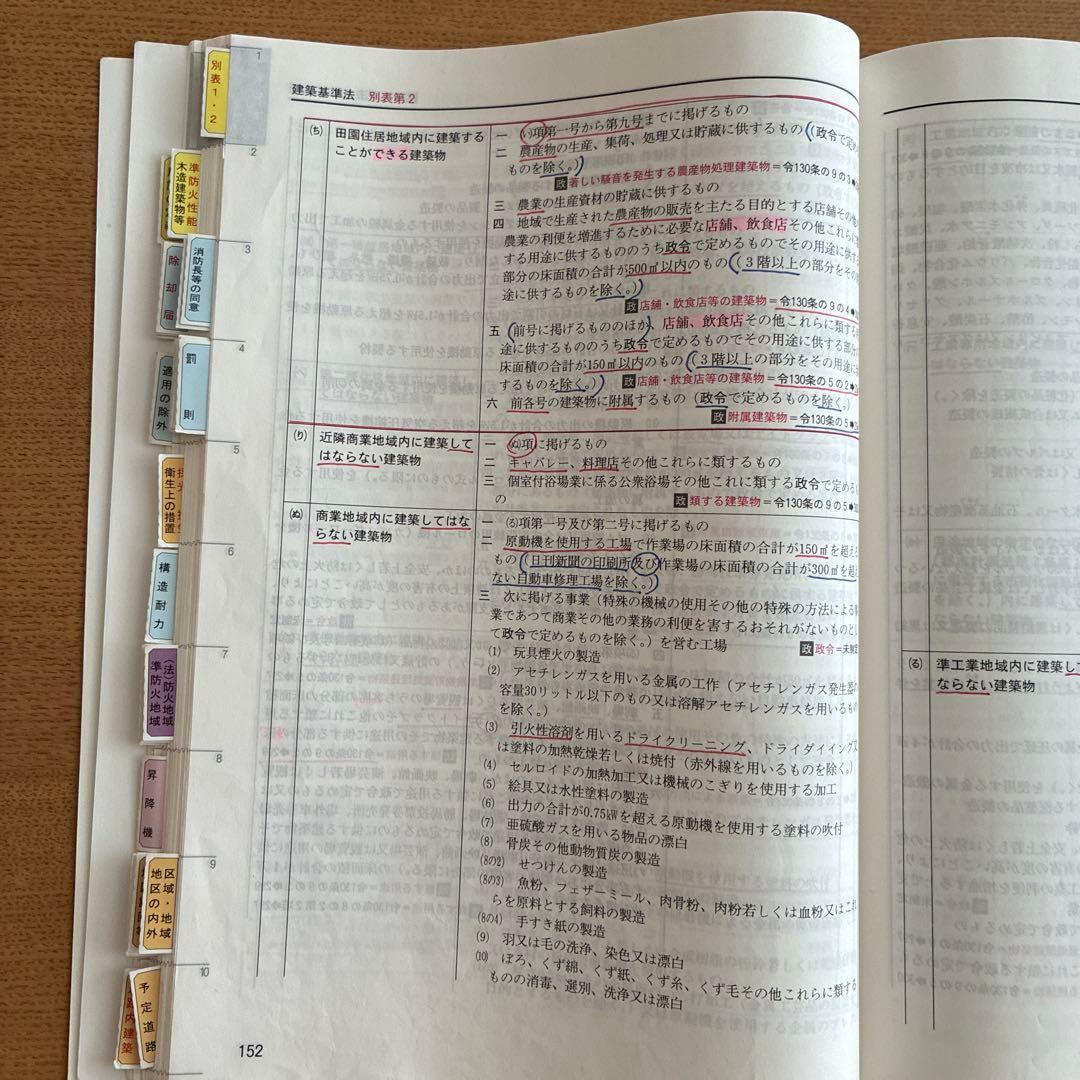 建築基準法 別表第2
(ち) 田園住居地域内に建築する
ことができる建築物
一 (い)項第一号から第九号までに掲げるもの
二 農産物の生産、集荷、処理又は貯蔵に供するもの(政令で定め
ものを除く。)
政 著しい騒音を発生する農産物処理建築物=令130条の9の3
三 農業の生産資材の貯蔵に供するもの
四 地域で生産された農産物の販売を主たる目的とする店舗その他
農業の利便を増進するために必要な店舗、飲食店その他これらに
する用途に供するもののうち政令で定めるものでその用途に供する
部分の床面積の合計が500㎡以内のもの(3階以上の部分をその
途に供するものを除く。)
政 店舗・飲食店等の建築物=令130条の9の4
五 (前号に掲げるもののほか、店舗、飲食店その他これらに類する
途に供するもののうち政令で定めるものでその用途に供する部
床面積の合計が150㎡以内のもの(3階以上の部分をその用途に
するものを除く。)
政 店舗・飲食店等の建築物=令130条の5の2
六 前各号の建築物に附属するもの(政令で定めるものを除く。)
政 附属建築物=令130条の5
(り) 近隣商業地域内に建築して
はならない建築物
一 (ぬ)項に掲げるもの
二 キャバレー、料理店その他これらに類するもの
三 個室付浴場業に係る公衆浴場その他これに類する政令で定める
の
政 類する建築物=令130条の9の5
(ぬ) 商業地域内に建築してはな
らない建築物
一 (る)項第一号及び第二号に掲げるもの
二 原動機を使用する工場で作業場の床面積の合計が150㎡を超え
もの(日刊新聞の印刷所及び作業場の床面積の合計が300㎡を超え
ない自動車修理工場を除く。)
三 次に掲げる事業(特殊の機械の使用その他の特殊の方法による
業であつて商業その他の業務の利便を害するおそれがないものとし
て政令で定めるものを除く。)を営む工場
政 政令=未制定
(1) 玩具煙火の製造
(2) アセチレンガスを用いる金属の工作(アセチレンガス発生器の
容量30リットル以下のもの又は溶解アセチレンガスを用いるもの
を除く。)
(3) 引火性溶剤を用いるドライクリーニング、ドライダイイング又
は塗料の加熱乾燥若しくは焼付(赤外線を用いるものを除く。)
(4) セルロイドの加熱加工又は機械のこぎりを使用する加工
(5) 絵具又は水性塗料の製造
(6) 出力の合計が0.75kWを超える原動機を使用する塗料の吹付
(7) 亜硫酸ガスを用いる物品の漂白
(8) 骨炭その他動物質炭の製造
(8の2) せつけんの製造
(8の3) 魚粉、フェザーミール、肉骨粉、肉粉若しくは血粉又はこれ
らを原料とする飼料の製造
(8の4) 手すき紙の製造
(9) 羽又は毛の洗浄、染色又は漂白
(10) ぼろ、くず綿、くず紙、くず糸、くず毛その他これらに類する
ものの消毒、選別、洗浄又は漂白
152
(る) 準工業地域内に建築し
ならない建築物
1
別表1・2
2
準防火性能
木造建築物等
3
消防長等の同意
除却届
4
罰則
適用の除外
5
衛生上の措置
6
構造耐力
7
(法)防火地域
準防火地域
8
昇降機
9
区域・地域
地区の内外
10
予定道路